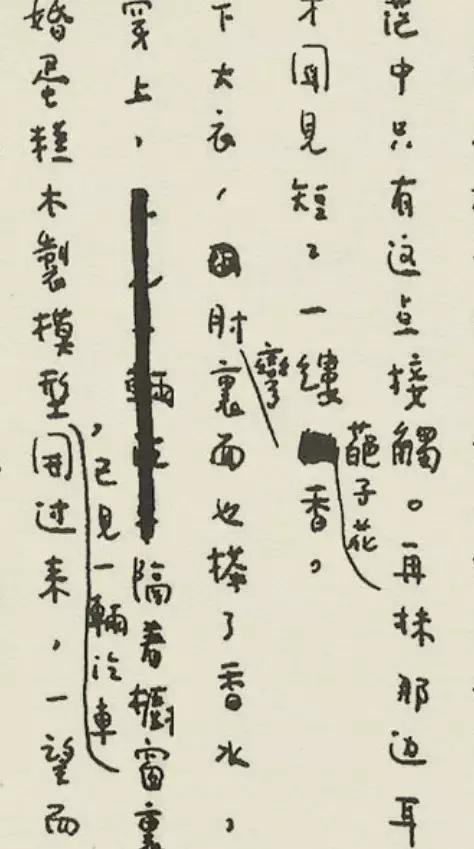 茫中只有这点接觸。再抹那边耳
子花
才聞見短〻一縷香。
彎
下大衣，肘裏面也搽了香水，
穿上，隔着櫥窗裏
，已見一輛汽車
婚蛋糕木製模型開过来，一望而